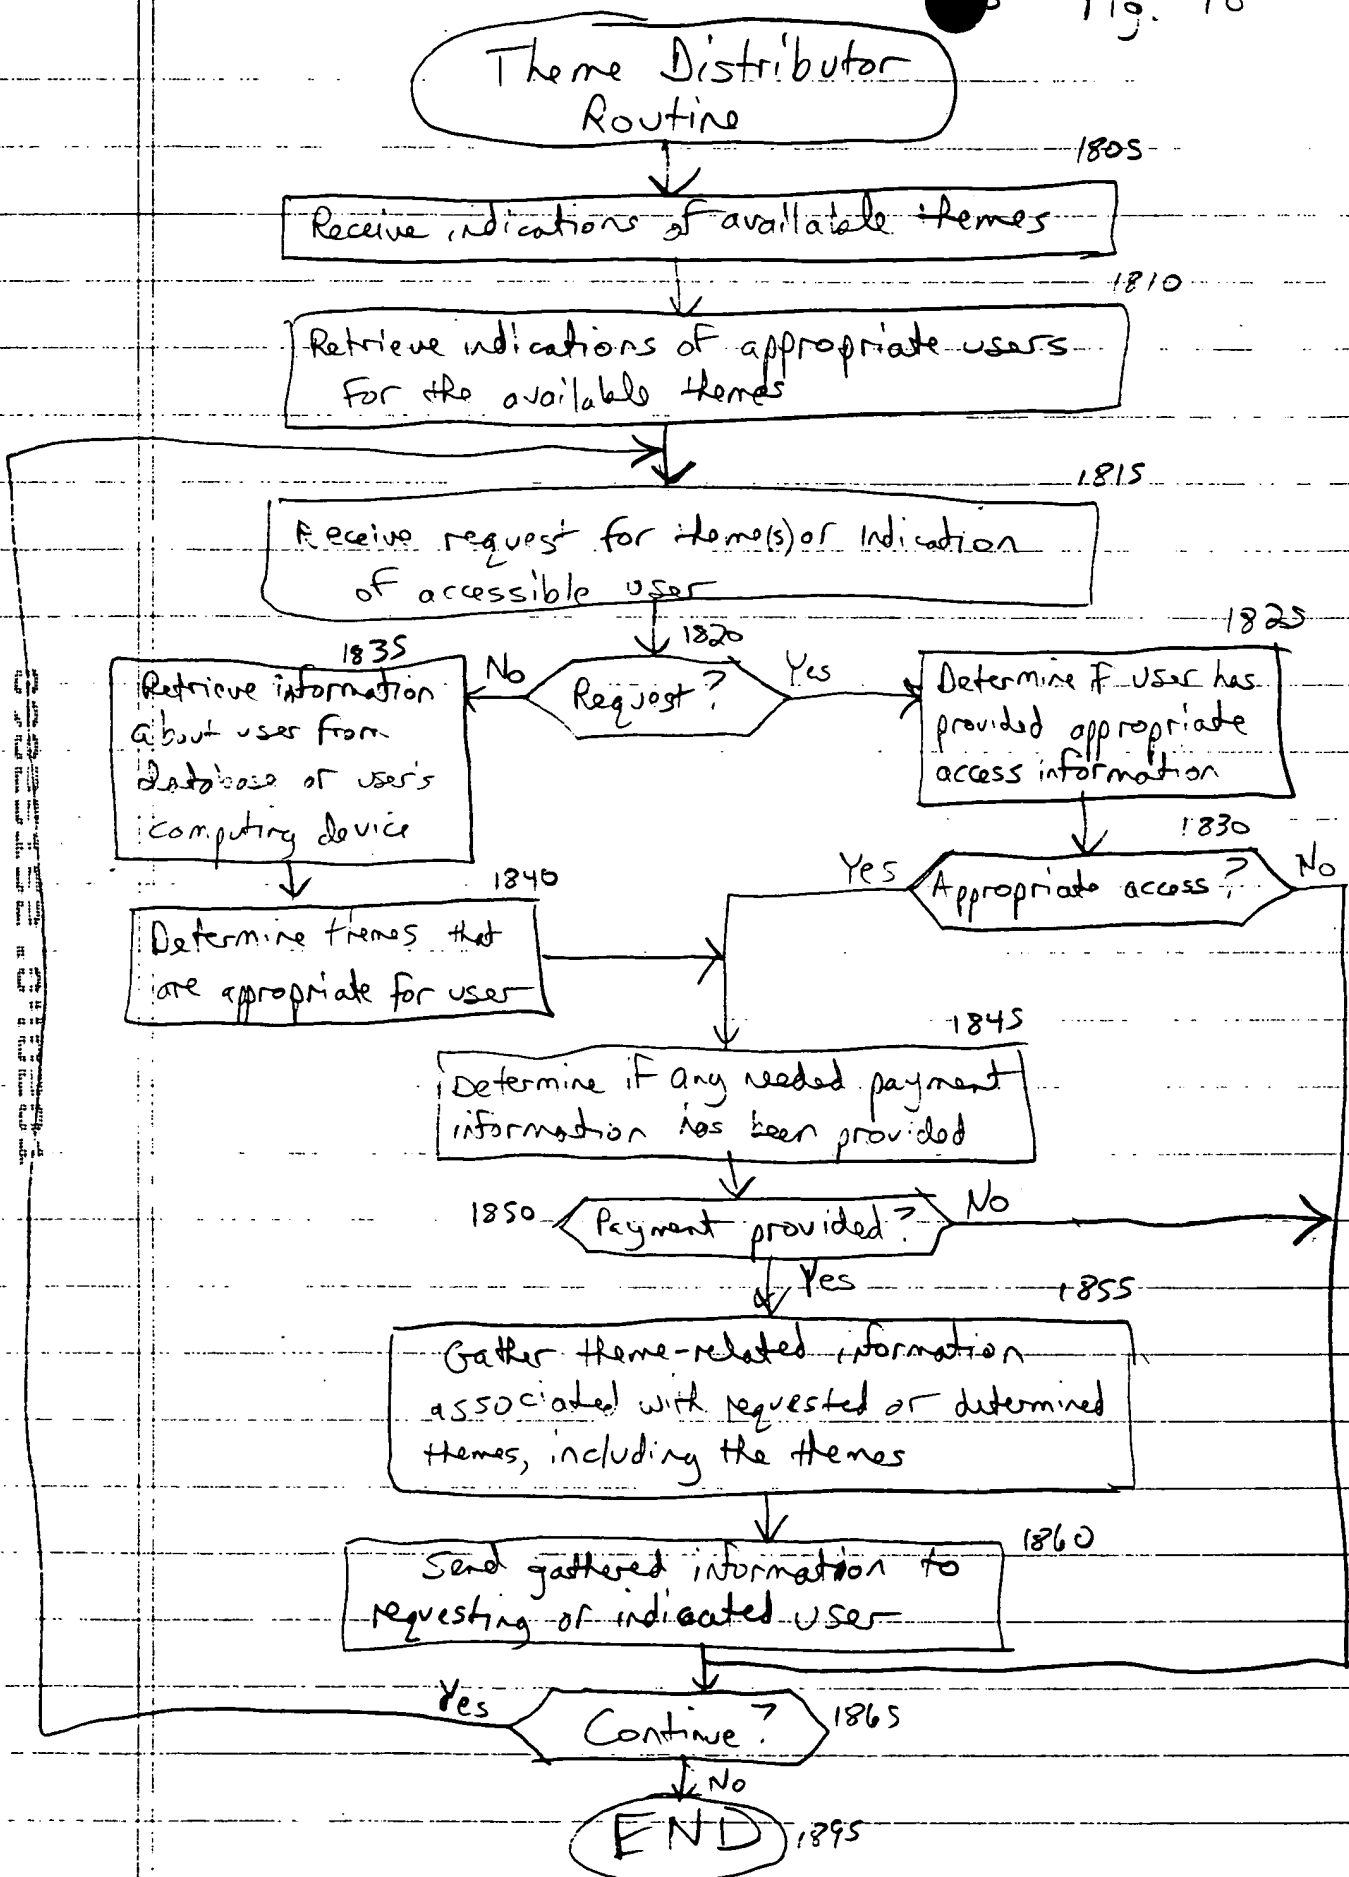 Fig. 18
Theme Distributor
Routine
1805
Receive indications of available themes
1810
Retrieve indications of appropriate users
for the available themes
1815
Receive request for theme(s) or indication
of accessible user
1820
Request?
No
Yes
1835
Retrieve information
about user from
database or user's
computing device
1825
Determine if user has
provided appropriate
access information
1830
Appropriate access?
Yes
No
1840
Determine themes that
are appropriate for user
1845
Determine if any needed payment
information has been provided
1850
Payment provided?
No
Yes
1855
Gather theme-related information
associated with requested or determined
themes, including the themes
1860
Send gathered information to
requesting or indicated user
Yes
Continue?
1865
No
END
1895